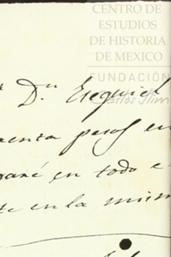 CENTRO DE
ESTUDIOS
DE HISTORIA
DE MEXICO
FUNDACIÓN
Carlos Slim
Dn Ezequiel
enta pesos en
en todo e
te en la mism